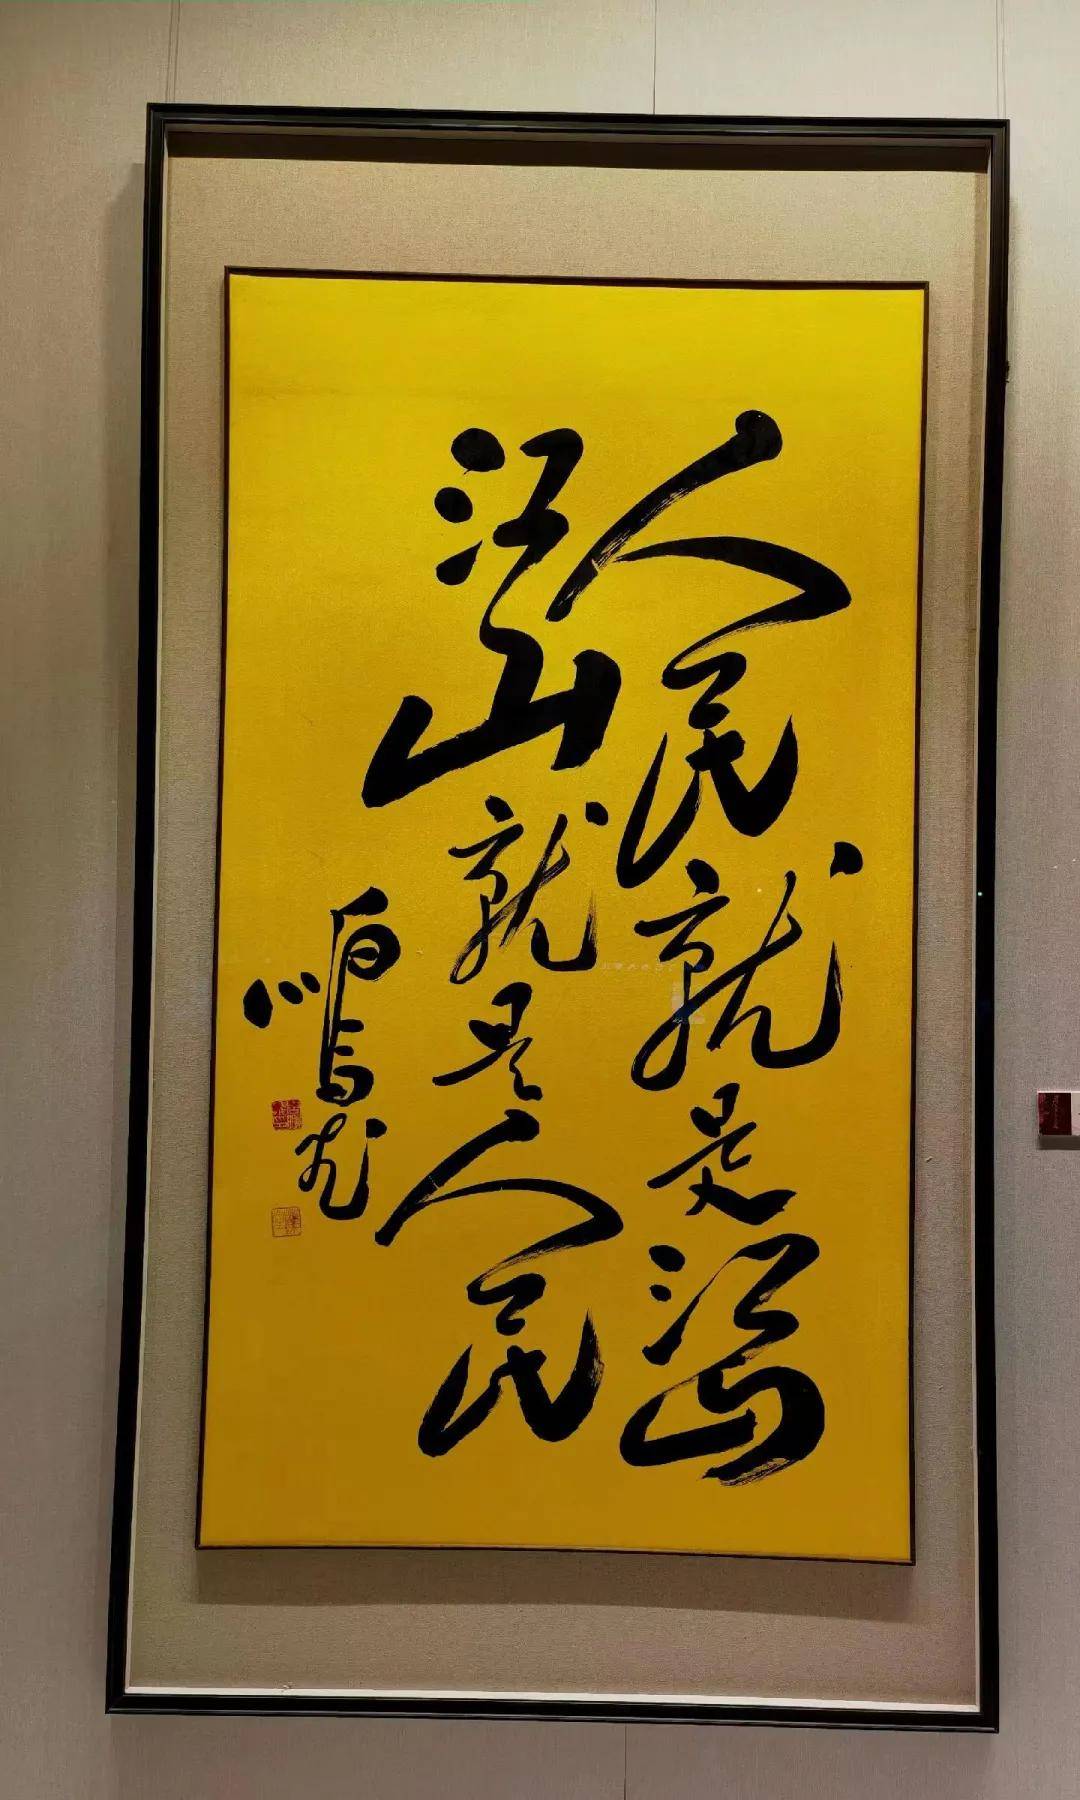 人民就是江山
江山就是人民